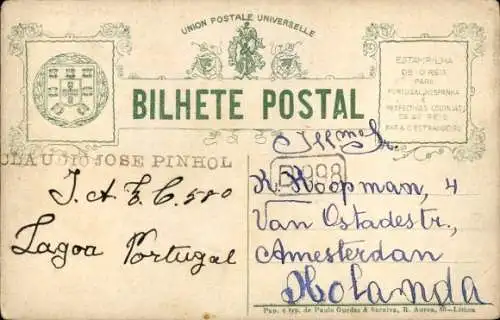 UNION POSTALE UNIVERSELLE
BILHETE POSTAL
ESTAMPILHA
DE 10 REIS
PARA
PORTUGAL, HESPANHA
E
RESPECTIVAS COLONIAS,
DE 20 REIS
PARA O ESTRANGEIRO
CLAUDIO JOSE PINHOL
J. A. E. C. 580
Lagoa Portugal
Illmo Sr.
K. Koopman, 4
Van Ostadestr.,
Amesterdan
Holanda
Pap. e typ. de Paulo Guedes & Saraiva, R. Aurea, 80-Lisboa